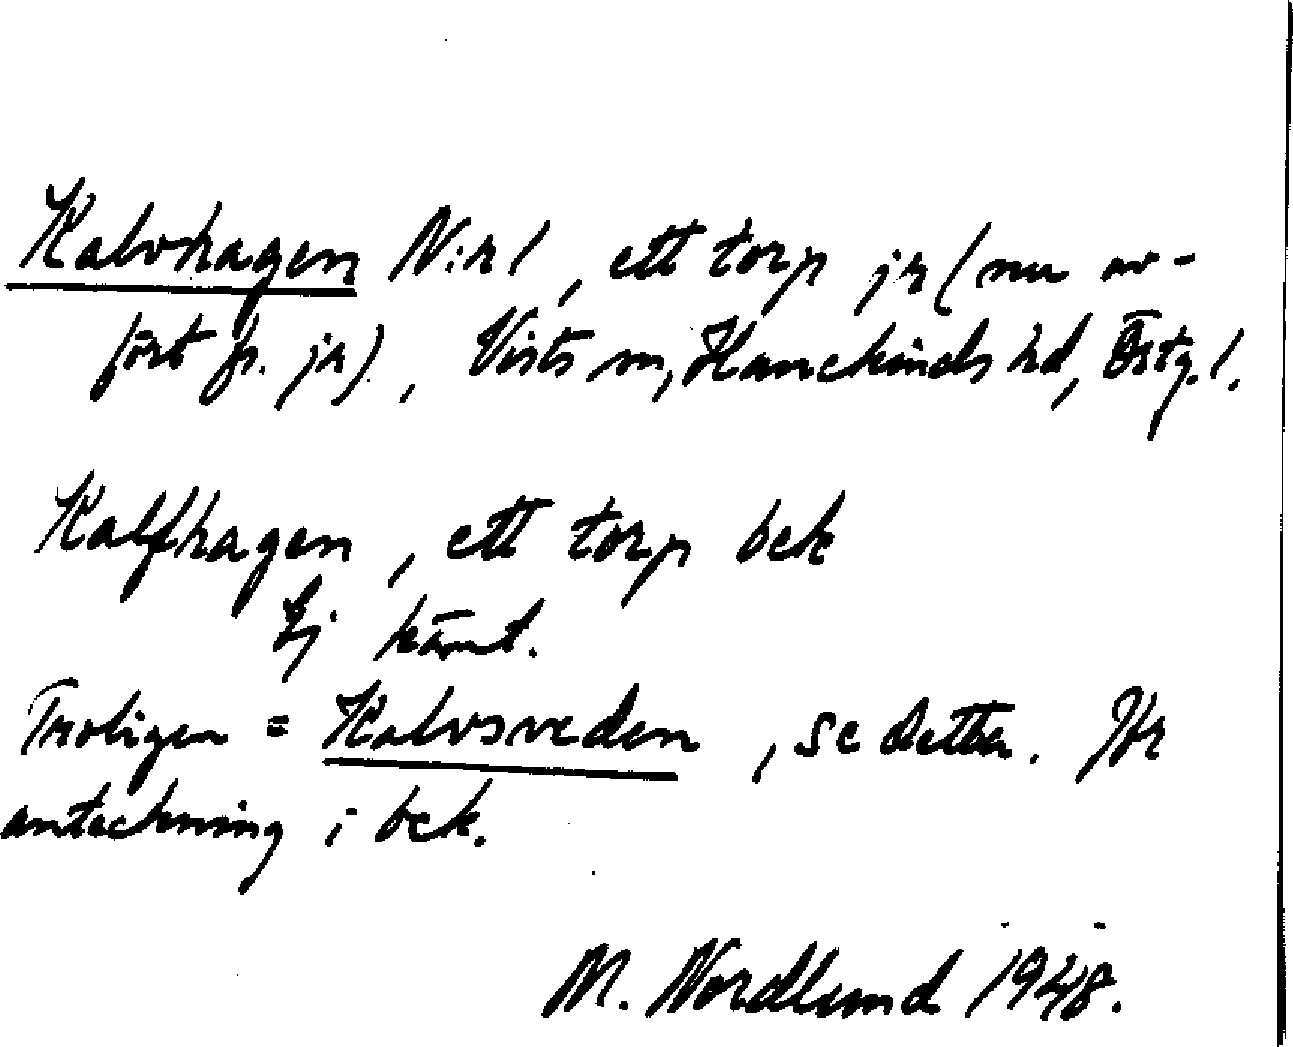 Kalvhagen N:r 1, ett torp jr (nu av-
fört fr. jr)., Vists sn, Hanekinds hd, Östg. l.
Kalfhagen, ett torp bek
Ej känt.
Troligen = Kalvsveden, se detta. Jfr
anteckning i bek.
M. Nordlund 1948.